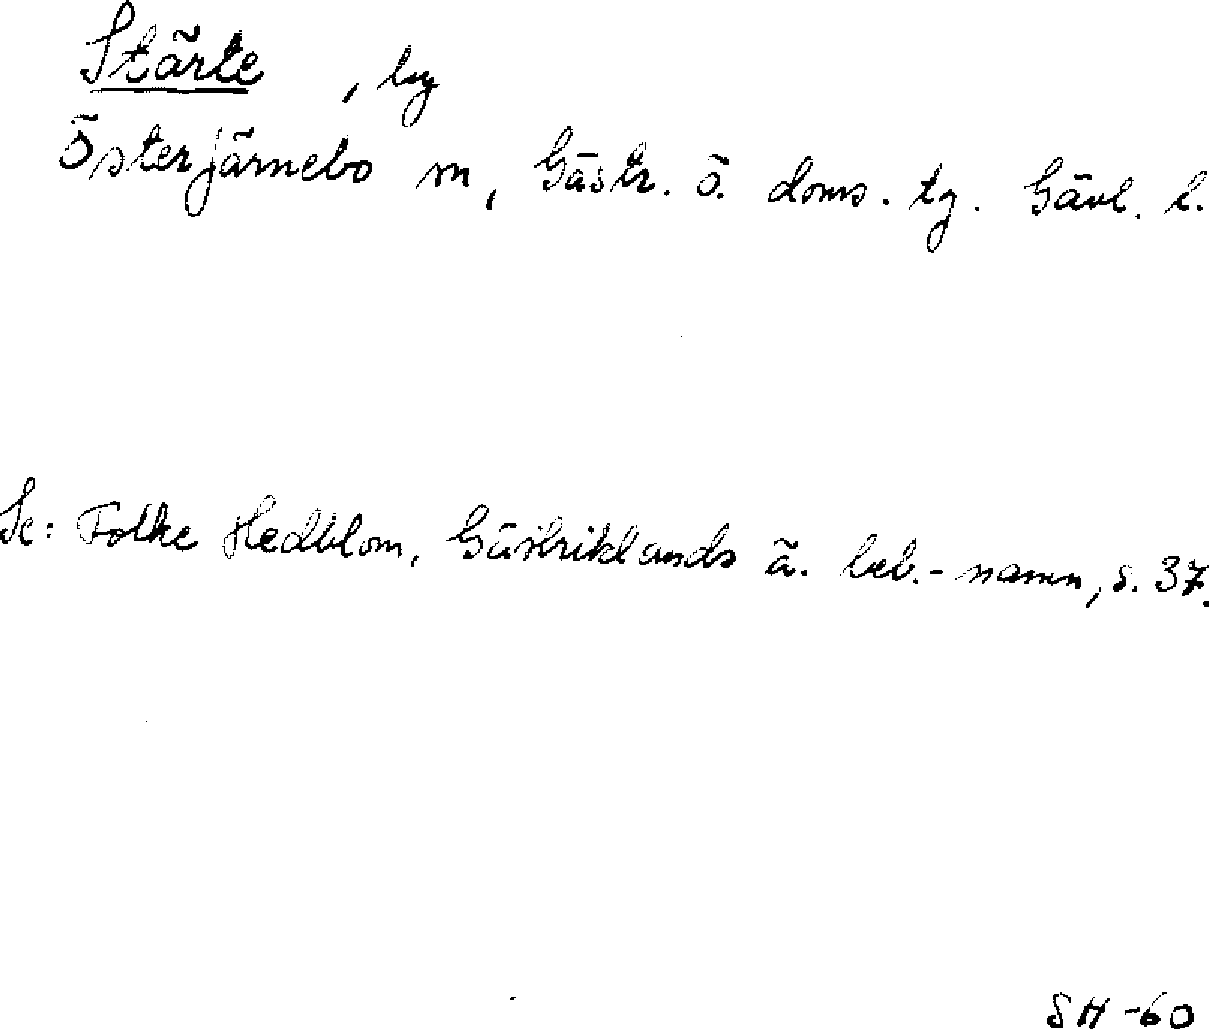 Stärte , by
Österjärnebo sn, Gästr. ö. doms. tg. Gävl. l.
Se: Folke Hedblom, Gästriklands ä. beb.-namn, s. 37.
SH-60